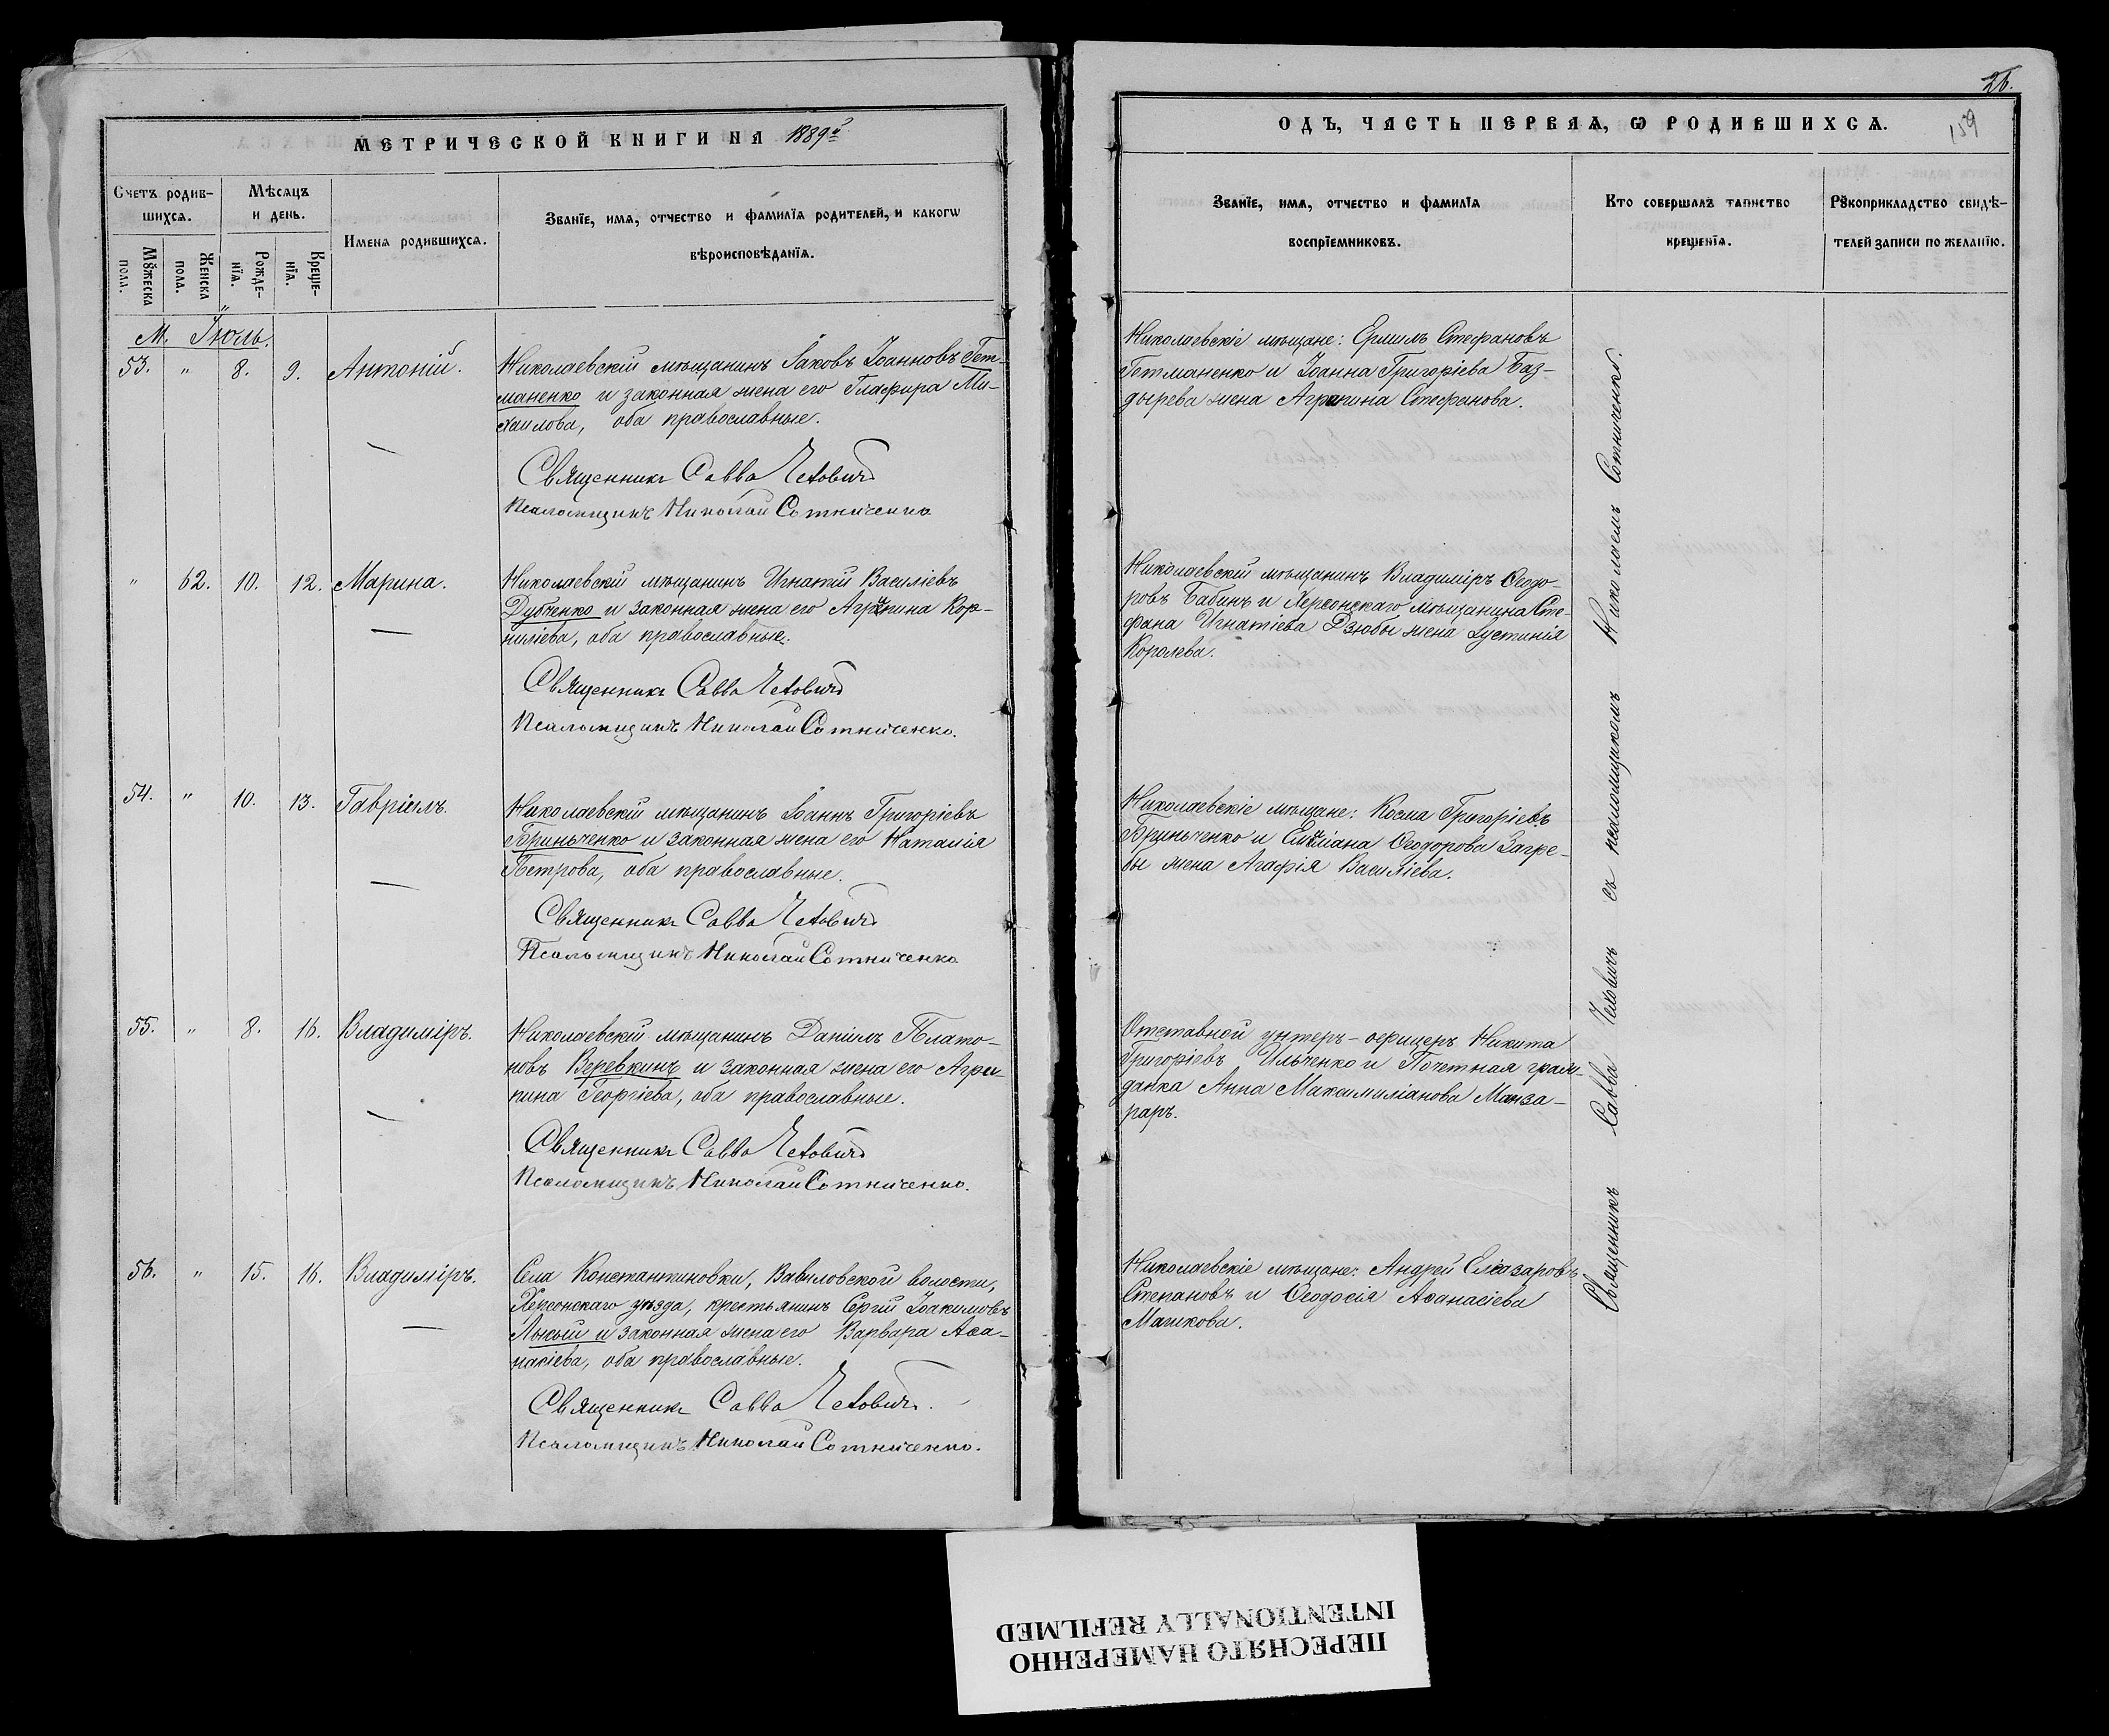 МЕТРИЧЕСКОЙ КНИГИ НА 1889й
Счетъ родив-
шихсѧ.
Мѣсѧцъ
и день.
Имена родившихсѧ.
Званїе, имѧ, отчество и фамилїѧ родителей, и какогѡ
вѣроисповѣданїѧ.
Мꙋжеска
пола.
Женска
пола.
Рожде-
нїѧ.
Креще-
нїѧ.
М. Іюль.
53. " 8. 9. Антоній.
Николаевскій мѣщанинъ Іаковъ Іоанновъ Гет-
маненко и законная жена его Глафира Ми-
хаилова, оба православные.
Священникъ Савва Чехович
Псаломщикъ Николай Сотниченко
" 62. 10. 12. Марина.
Николаевскій мѣщанинъ Игнатій Василіевъ
Дубченко и законная жена его Агрипина Кор-
ниліева, оба православные.
Священникъ Савва Чехович
Псаломщикъ Николай Сотниченко.
54. " 10. 13. Гавріилъ.
Николаевскій мѣщанинъ Іоаннъ Григоріевъ
Бриньченко и законная жена его Наталія
Петрова, оба православные.
Священникъ Савва Чехович
Псаломщикъ Николай Сотниченко
55. " 8. 16. Владиміръ.
Николаевскій мѣщанинъ Даніилъ Плато-
новъ Веревкинъ и законная жена его Агри-
пина Георгіева, оба православные.
Священникъ Савва Чехович
Псаломщикъ Николай Сотниченко.
56. " 15. 16. Владиміръ.
Села Константиновки, Вавиловской волости,
Херсонскаго уѣзда, крестьянинъ Сергій Іоакимовъ
Лысый и законная жена его Варвара Аѳа-
насіева, оба православные.
Священникъ Савва Чехович.
Псаломщикъ Николай Сотниченко.
26.
159
ОДЪ, ЧАСТЬ ПЕРВАѦ, Ѡ РОДИВШИХСѦ.
Званїе, имѧ, отчество и фамилїѧ
воспрїемниковъ.
Кто совершалъ таинство
крещенїѧ.
Рꙋкоприкладство свидѣ-
телей записи по желанїю.
Николаевскіе мѣщане: Ермилъ Стефановъ
Гетманенко и Іоанна Григоріева Баз-
дырева жена Агрипина Стефанова.
Николаевскій мѣщанинъ Владиміръ Ѳеодо-
ровъ Бабинъ и Херсонскаго мѣщанина Сте-
фана Игнатіева Дзюбы жена Іустинія
Королева.
Николаевскіе мѣщане: Косма Григоріевъ
Бриньченко и Емиліана Ѳеодорова Загре-
бы жена Агафія Василіева.
Отставной унтеръ-офицеръ Никита
Григоріевъ Ильченко и Почетная граж-
данка Анна Максимиліанова Манза-
раръ.
Николаевскіе мѣщане: Андрей Елеазаровъ
Степановъ и Ѳеодосія Аѳанасіева
Машкова.
Священникъ Савва Чеховичъ съ псаломщикомъ Николаемъ Сотниченко.
ПЕРЕСНЯТО НАМЕРЕННО
INTENTIONALLY REFILMED